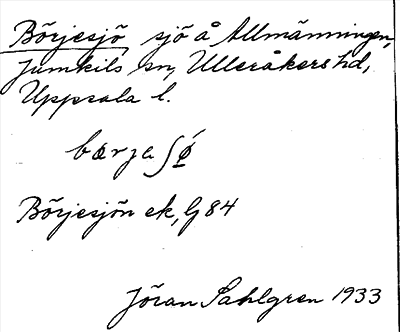 Börjesjö sjö å Allmänningen,
Jumkils sn, Ulleråkers hd,
Uppsala l.
bœrjaʃø̄́
Börjesjön ek, G 84
Jöran Sahlgren 1933